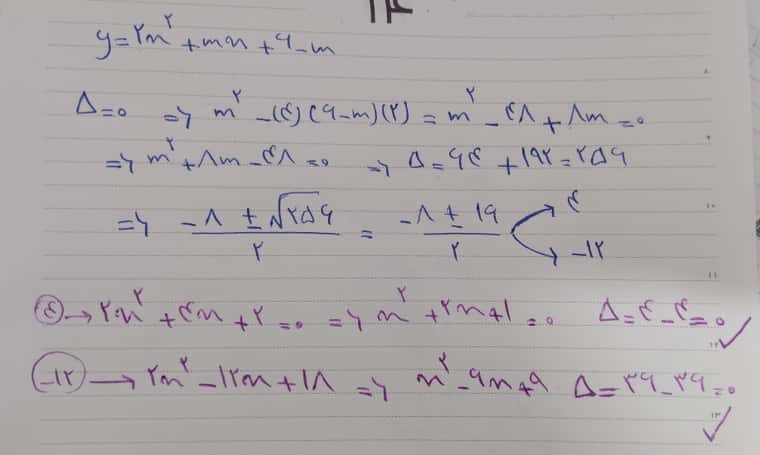 y=۲x^۲+mx+۶-m
Δ=۰ => m^۲-(۴)(۶-m)(۲)=m^۲-۴۸+۸m=۰
=> m^۲+۸m-۴۸=۰ => Δ=۶۴+۱۹۲=۲۵۶
=> (-۸±√۲۵۶)/۲ = (-۸±۱۶)/۲ ↗ ۴ ↘ -۱۲
۴ → ۲x^۲+۴x+۲=۰ => x^۲+۲x+۱=۰ Δ=۴-۴=۰ ✓
-۱۲ → ۲x^۲-۱۲x+۱۸ => x^۲-۶x+۹ Δ=۳۶-۳۶=۰ ✓